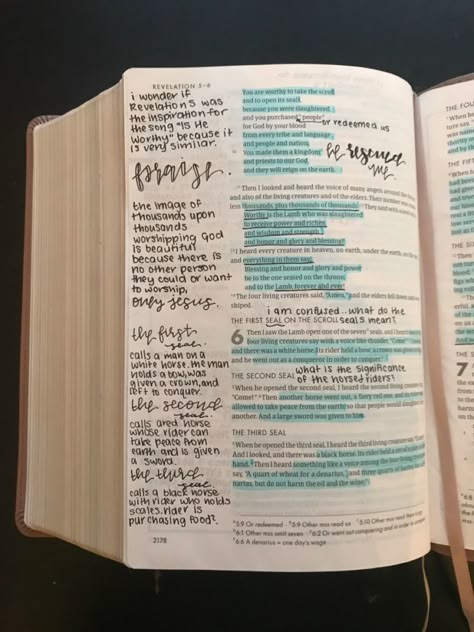 REVELATION 5–6
i wonder if
Revelation 5 was
the inspiration for
the song "Is He
Worthy" because it
is very similar.
praise.
the image of
thousands upon
thousands
worshipping God
is beautiful
because there is
no other person
they could or want
to worship,
only Jesus.
the first
seal
calls a man on a
white horse. the man
holds a bow, was
given a crown, and
left to conquer.
the second
seal
calls a red horse
whose rider can
take peace from
earth and is given
a sword.
the third
seal
calls a black horse
with rider who holds
scales. rider is
purchasing food?
2178
You are worthy to take the scroll
and to open its seals,
because you were slaughtered,
and you purchased people
or redeemed us
for God by your blood
from every tribe and language
and people and nation.
You made them a kingdom
and priests to our God,
and they will reign on the earth.
he rescued
me.
Then I looked and heard the voice of many angels around the
and also of the living creatures and of the elders. Their number was
less thousands, plus thousands of thousands. They said with a loud
Worthy is the Lamb who was slaughtered
to receive power and riches
and wisdom and strength
and honor and glory and blessing!
I heard every creature in heaven, on earth, under the earth, on the
and everything in them say,
Blessing and honor and glory and power
be to the one seated on the throne,
and to the Lamb, forever and ever!
The four living creatures said, "Amen," and the elders fell down and
shiped.
i am confused... what do the
seals mean?
THE FIRST SEAL ON THE SCROLL
6 Then I saw the Lamb open one of the seven seals, and I heard
four living creatures say with a voice like thunder, "Come!"
and there was a white horse. Its rider held a bow; a crown was given to
he went out as a conqueror in order to conquer.
what is the significance
of the horses/riders?
THE SECOND SEAL
When he opened the second seal, I heard the second living creature say,
"Come!" Then another horse went out, a fiery red one, and its
allowed to take peace from the earth so that people would slaughter
another. And a large sword was given to him.
THE THIRD SEAL
When he opened the third seal, I heard the third living creature say, "Come!"
And I looked, and there was a black horse. Its rider held a set of scales in his
hand. Then I heard something like a voice among the four living
say, "A quart of wheat for a denarius, and three quarts of barley for
narius, but do not harm the oil and the wine."
5:9 Or redeemed 5:9 Other mss read us 5:10 Other mss read them
6:1 Other mss omit seven 6:2 Or went out conquering and in order to
6:6 A denarius = one day's wage
THE FO
7